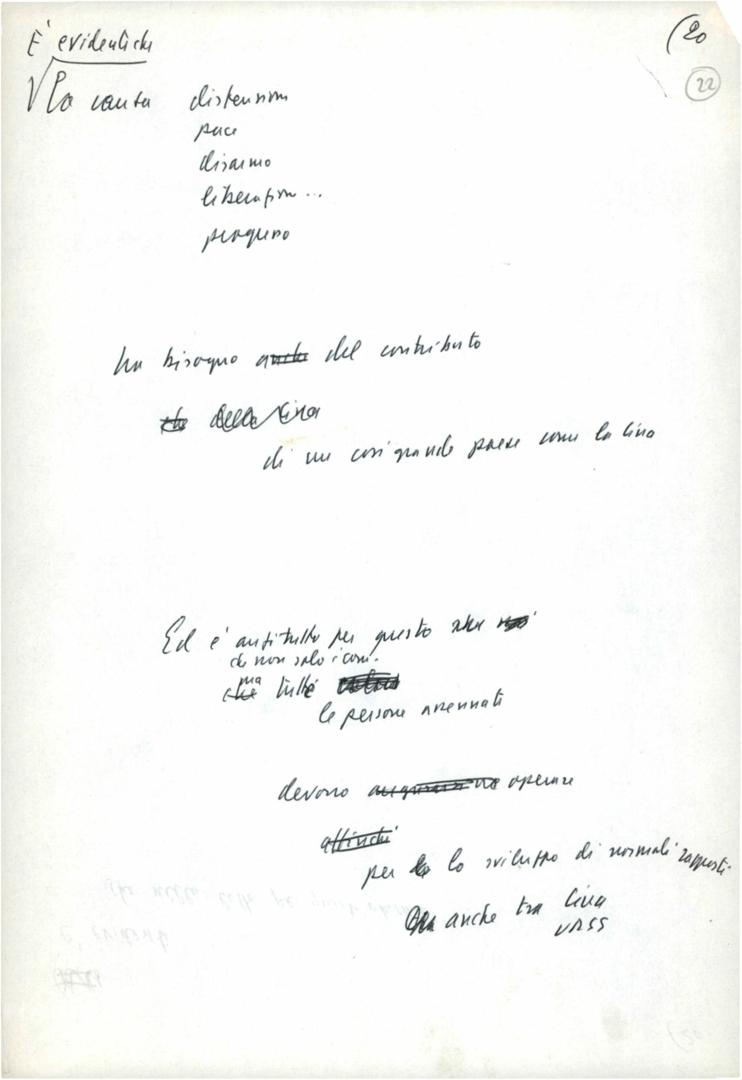 (20
22
È evidente che
La causa distensione
pace
disarmo
liberazion...
progresso
ha bisogno anche del contributo
che della Cina
di un così grande paese come la Cina
Ed è anzitutto per questo che noi
che non solo i com.
ma
che tutti
le persone assennate
devono augurarsi operare
affinché
per lo sviluppo di normali rapporti
anche tra Cina
URSS